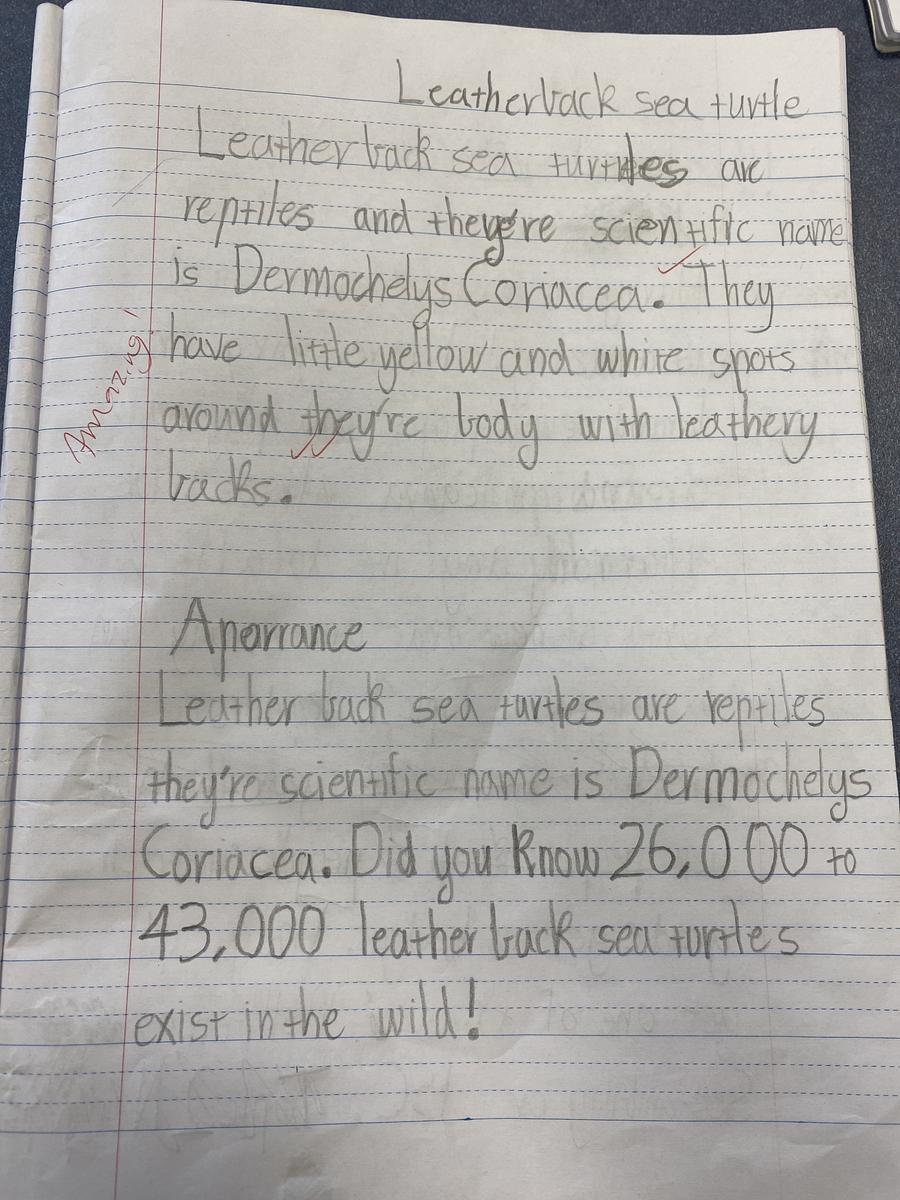 Leatherback sea turtle
Leatherback sea turtles are
reptiles and they're scientific name
is Dermochelys Coriacea. They
have little yellow and white spots
Amazing!
around they're body with leathery
backs.
Aparrance
Leather back sea turtles are reptiles
they're scientific name is Dermochelys
Coriacea. Did you know 26,000 to
43,000 leather back sea turtles
exist in the wild!